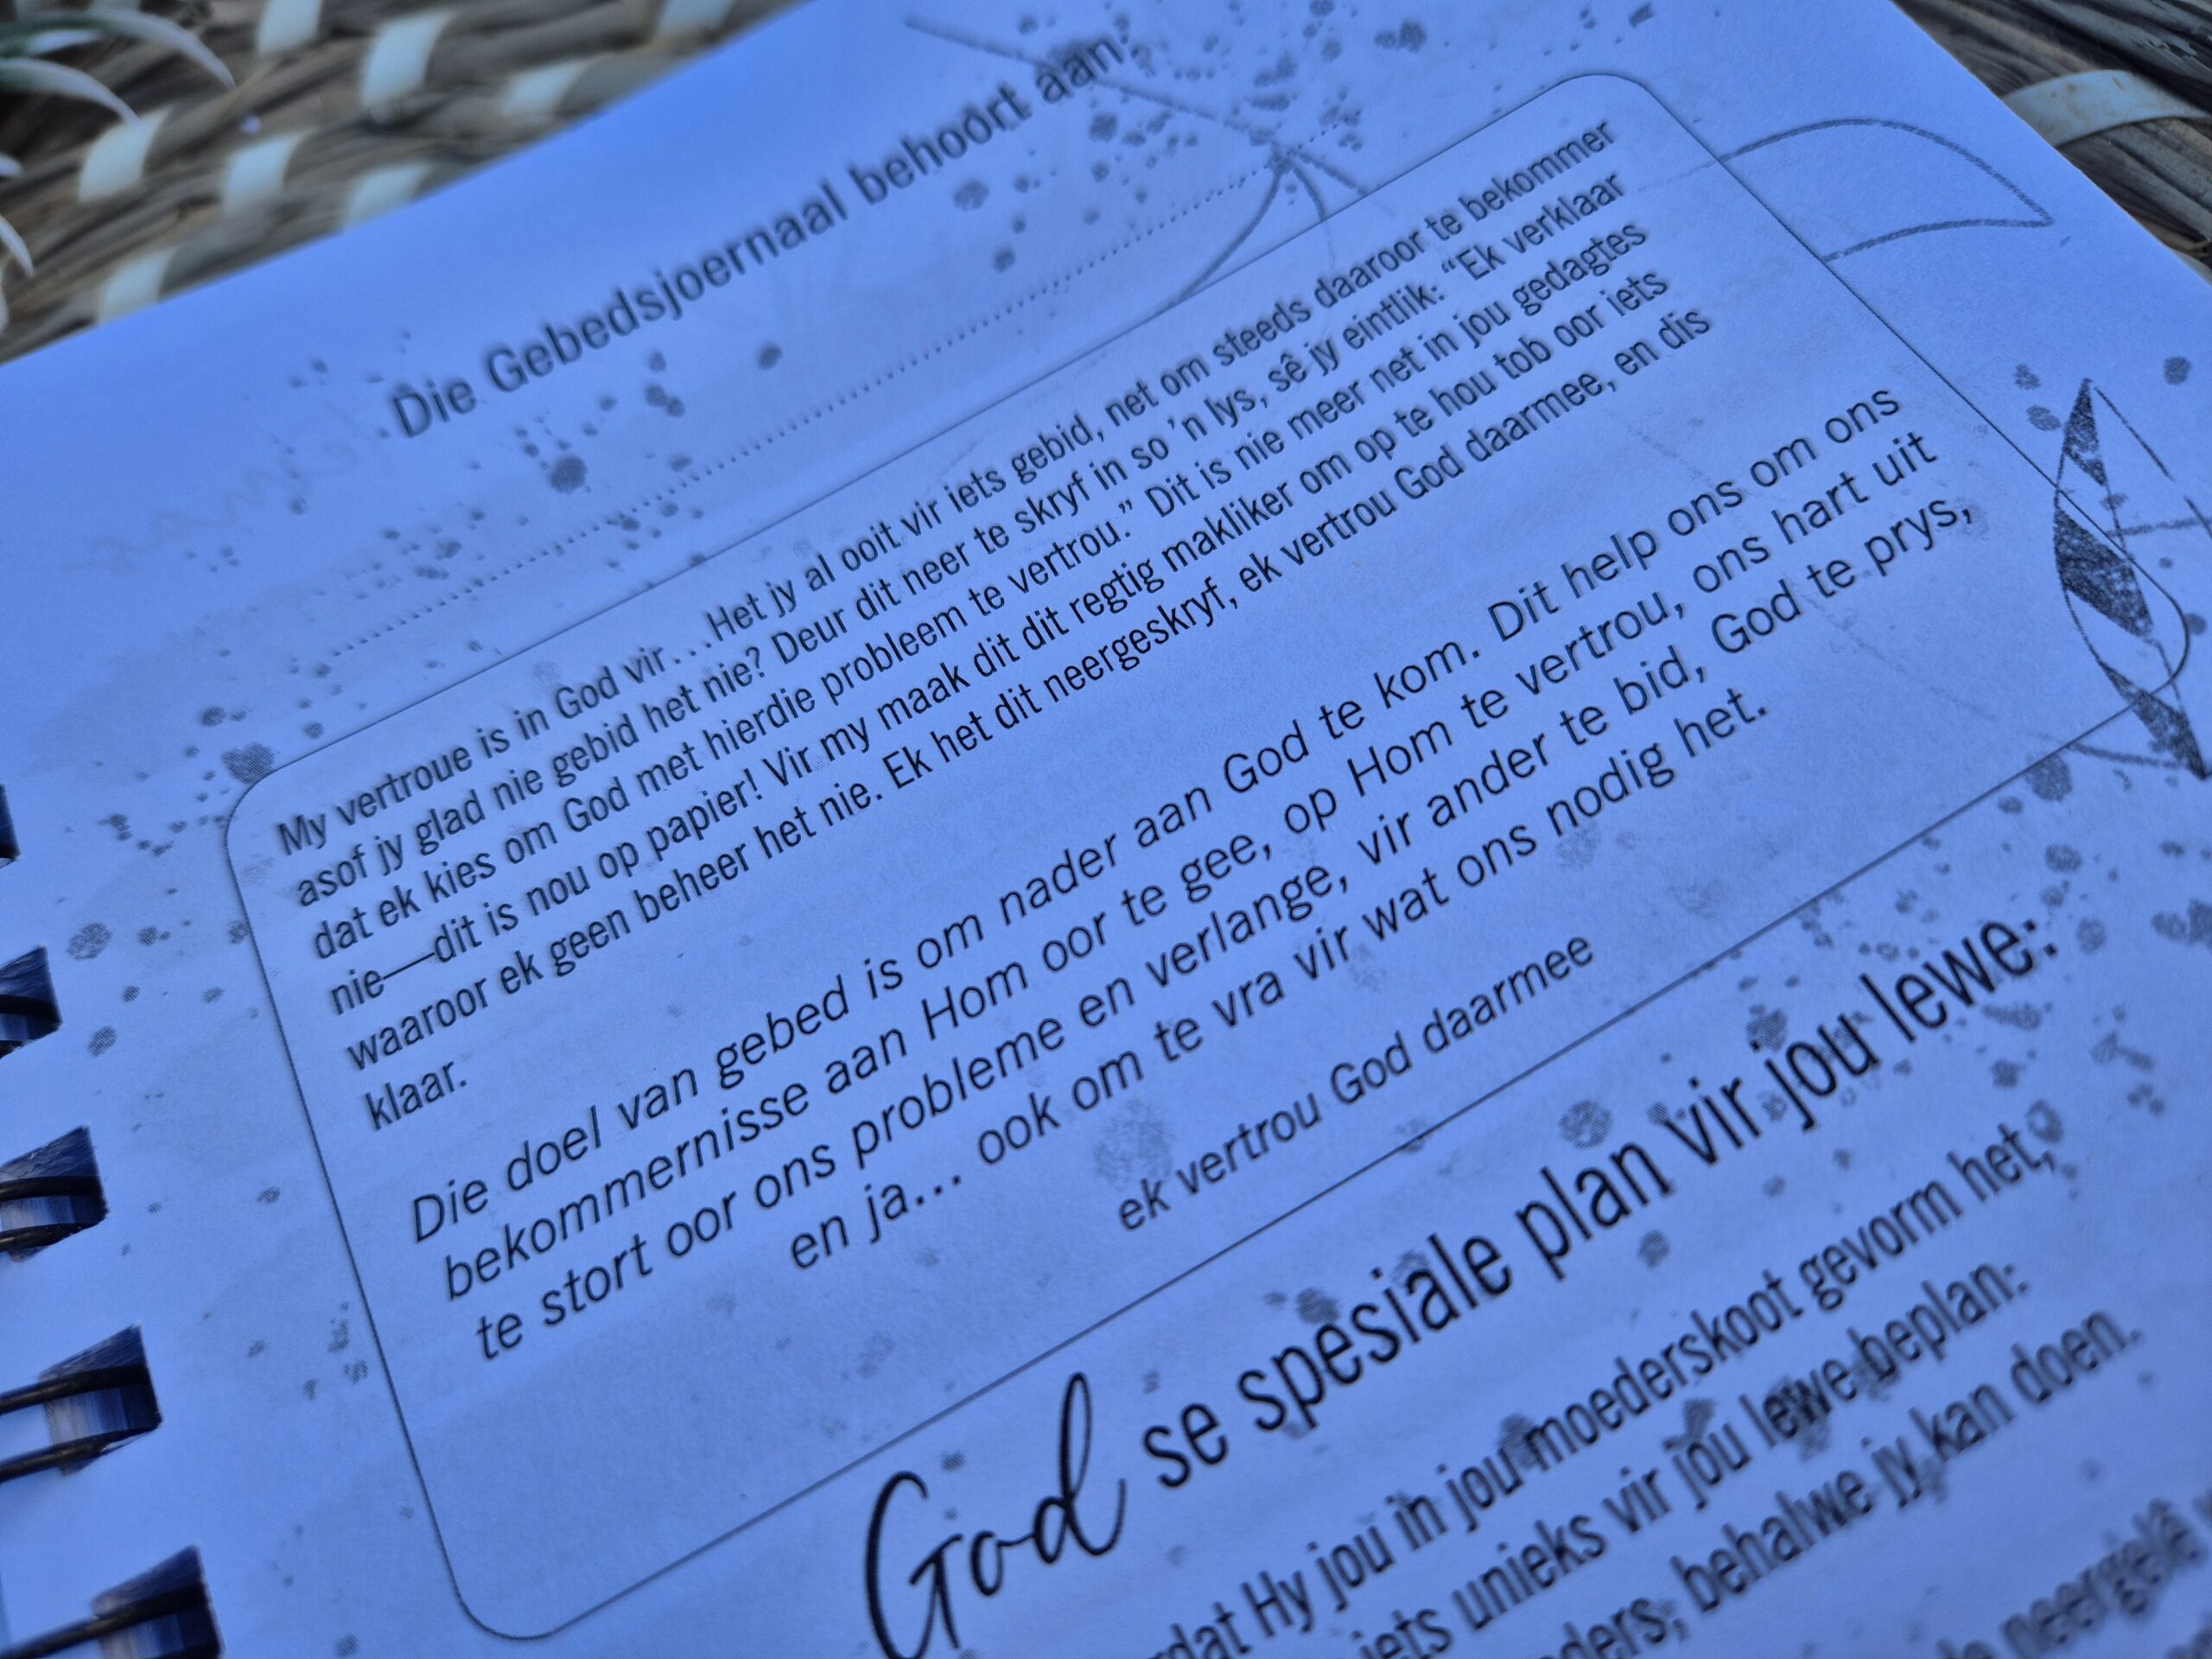 Die Gebedsjoernaal behoort aan:
My vertroue is in God vir...Het jy al ooit vir iets gebid, net om steeds daaroor te bekommer
asof jy glad nie gebid het nie? Deur dit neer te skryf in so 'n lys, sê jy eintlik: “Ek verklaar
dat ek kies om God met hierdie probleem te vertrou.” Dit is nie meer net in jou gedagtes
nie—dit is nou op papier! Vir my maak dit dit regtig makliker om op te hou tob oor iets
waaroor ek geen beheer het nie. Ek het dit neergeskryf, ek vertrou God daarmee, en dis
klaar.
Die doel van gebed is om nader aan God te kom. Dit help ons om ons
bekommernisse aan Hom oor te gee, op Hom te vertrou, ons hart uit
te stort oor ons probleme en verlange, vir ander te bid, God te prys,
en ja... ook om te vra vir wat ons nodig het.
ek vertrou God daarmee
God se spesiale plan vir jou lewe:
Hy jou in jou moederskoot gevorm het,
iets unieks vir jou lewe beplan:
behalwe jy kan doen.
neergelê